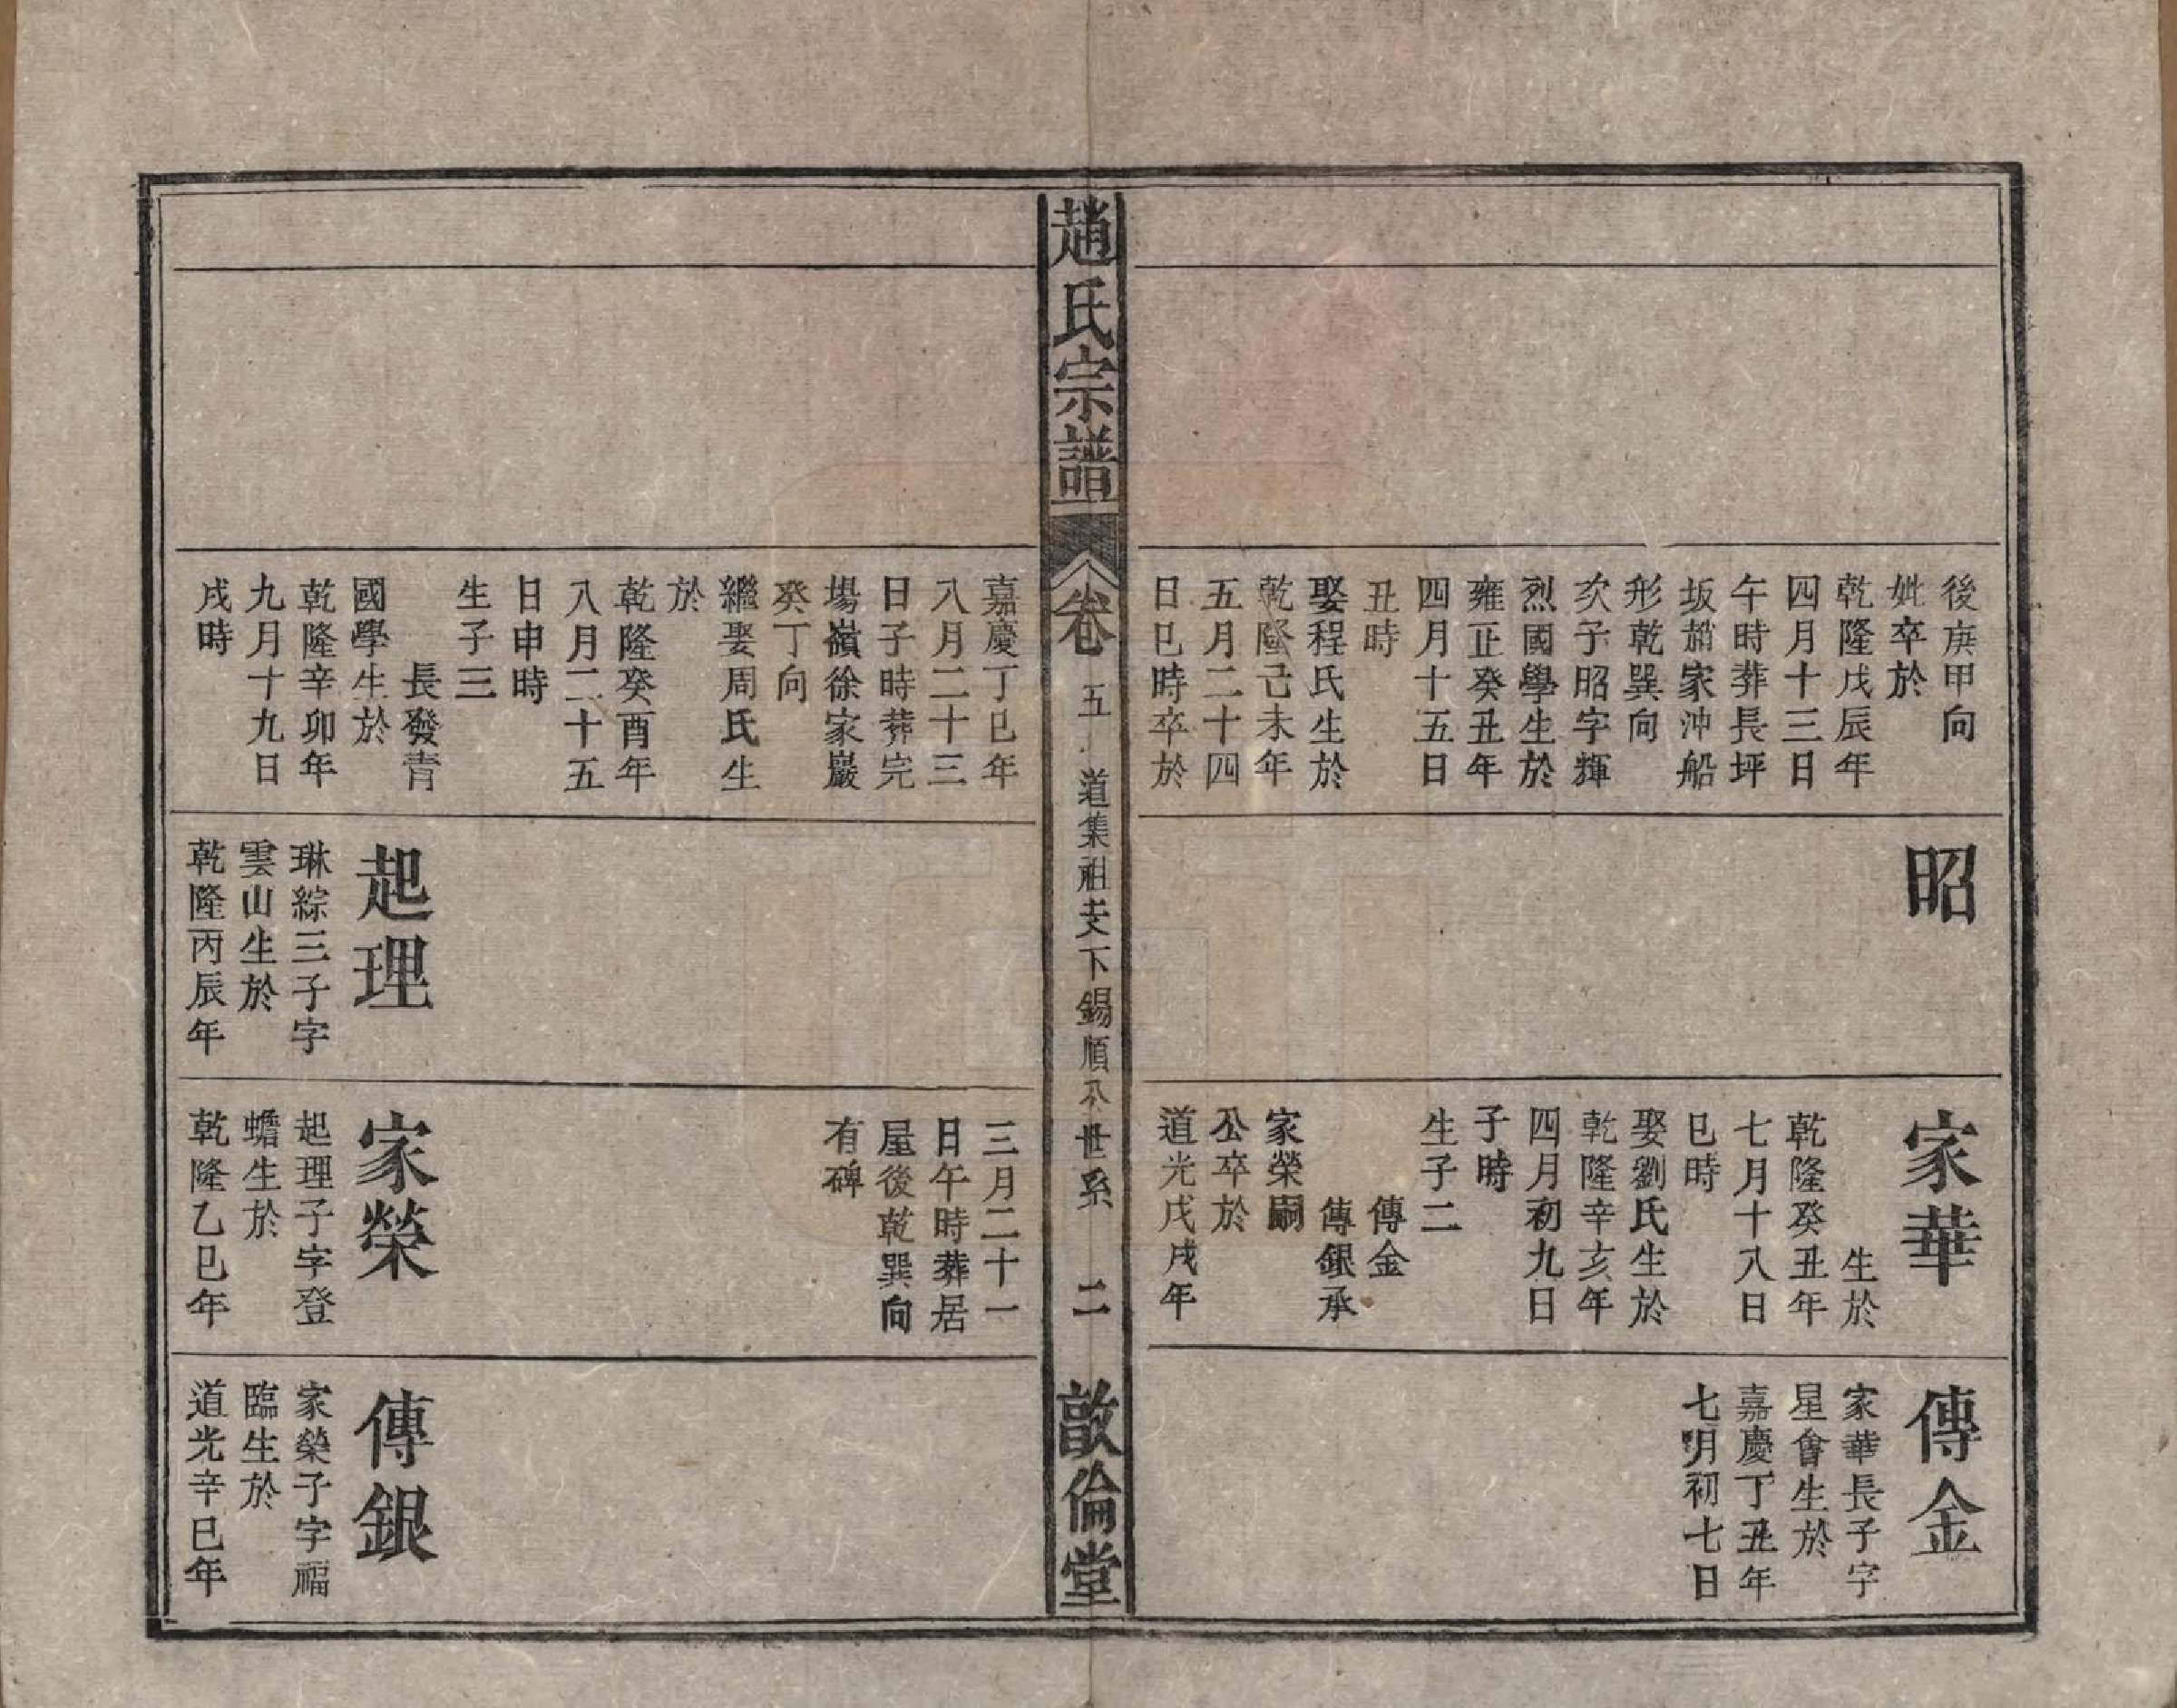 後庚甲向
妣卒於
乾隆戊辰年
四月十三日
午時葬長坪
坂蕭家沖船
形乾巽向
次子昭字輝
烈國學生於
雍正癸丑年
四月十五日
丑時
娶程氏生於
乾隆己未年
五月二十四
日巳時卒於
昭
家華
生於
乾隆癸丑年
七月十八日
巳時
娶劉氏生於
乾隆辛亥年
四月初九日
子時
生子二
傳金
傳銀承
家榮嗣
公卒於
道光戊戌年
傳金
家華長子字
星會生於
嘉慶丁丑年
七月初七日
趙氏宗譜
卷五
道集祖支下錫順公世系
二
敦倫堂
嘉慶丁巳年
八月二十三
日子時葬完
場嶺徐家巖
癸丁向
繼娶周氏生
於
乾隆癸酉年
八月二十五
日申時
生子三
長發青
國學生於
乾隆辛卯年
九月十九日
戌時
起理
琳綜三子字
雲山生於
乾隆丙辰年
三月二十一
日午時葬居
屋後乾巽向
有碑
家榮
起理子字登
蟾生於
乾隆乙巳年
傳銀
家榮子字福
臨生於
道光辛巳年